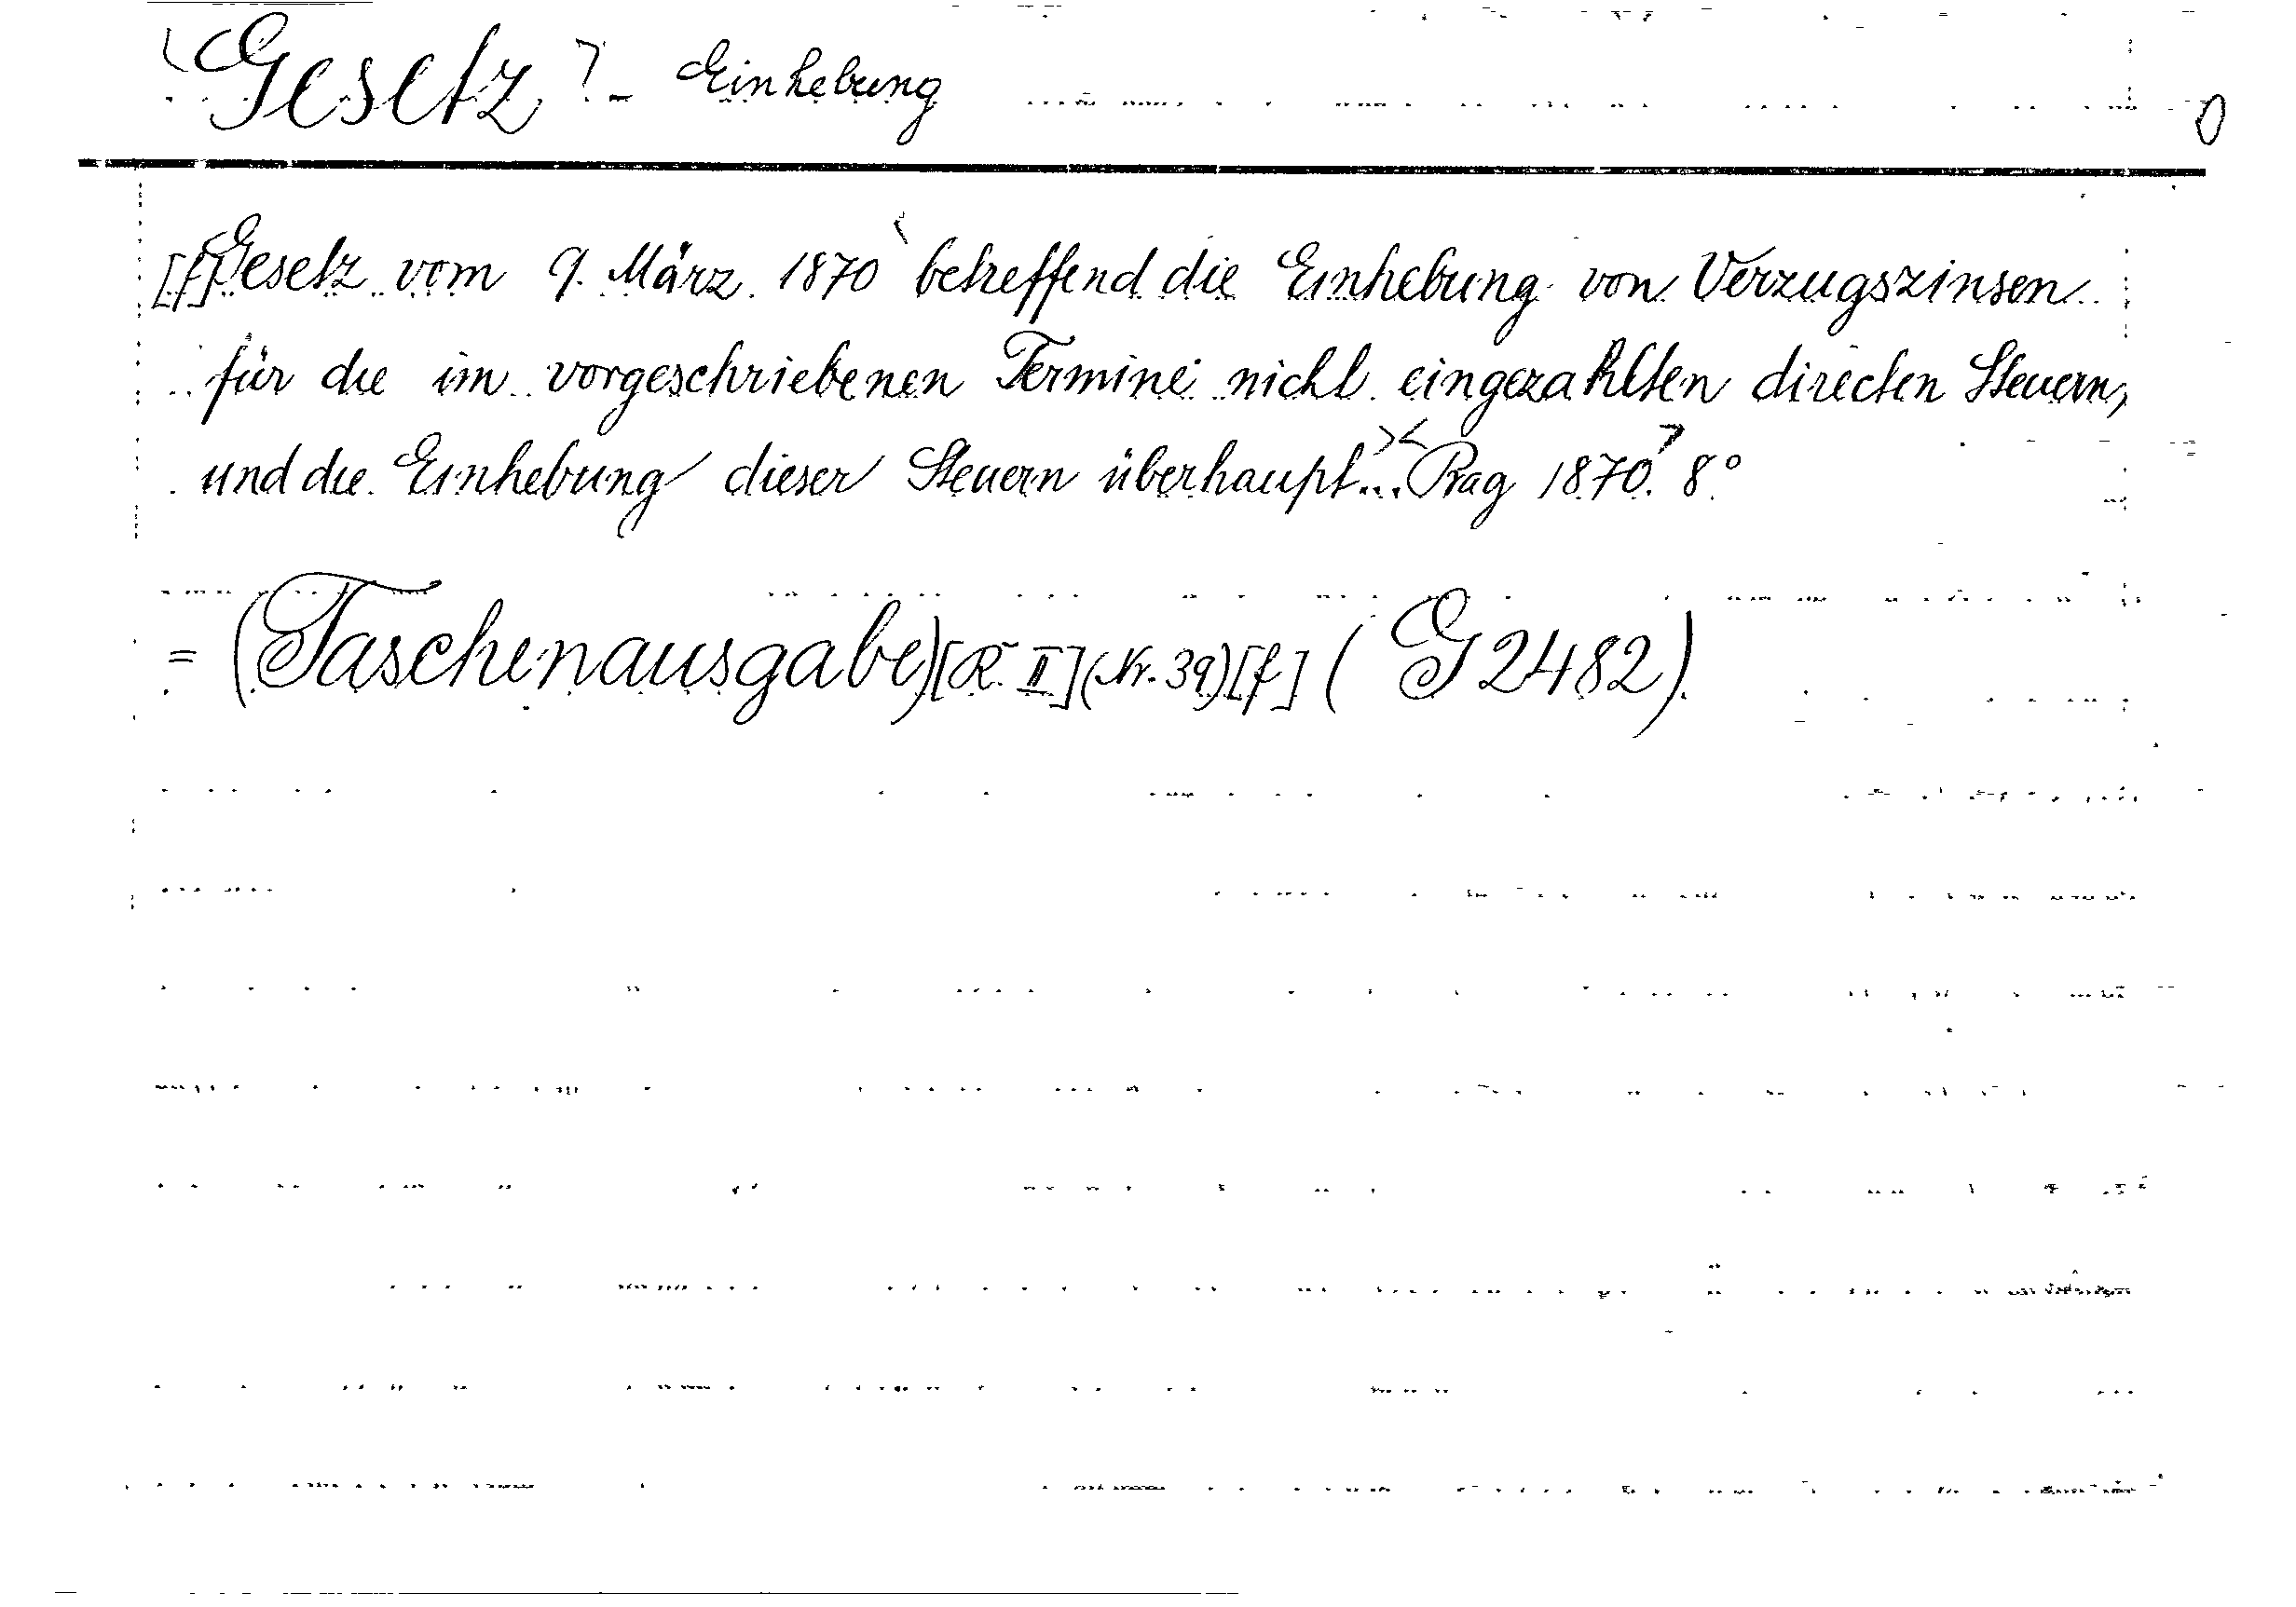 ⟨Gesetz⟩ - Einhebung 0
[f] Gesetz vom 9. März 1870 betreffend die Einhebung von Verzugszinsen
für die im vorgeschriebenen Termine nicht eingezahlten directen Steuern,
und die Einhebung dieser Steuern überhaupt... Prag 1870. 8°
= (Taschenausgabe) [R. II] (Nr. 39) [f] (G 2482).